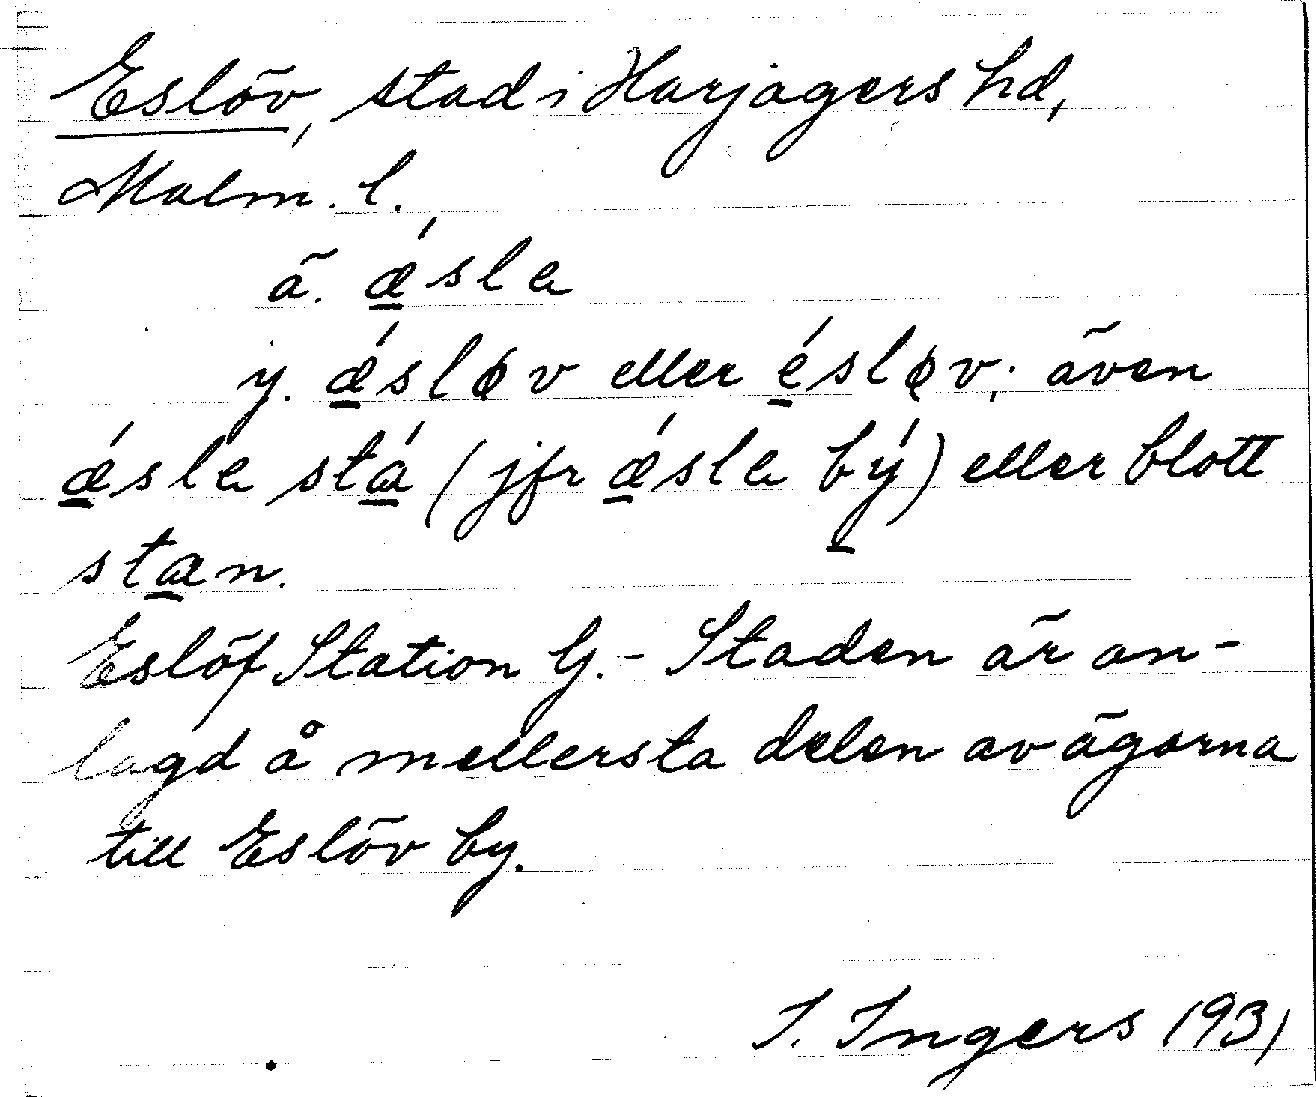 Eslöv, stad i Harjagers hd,
Malm. l.
ä. ǽsla
y. ǽsløv eller ésløv; även
ǽsla stá (jfr ǽsla bý) eller blott
stan.
Eslöf Station G. - Staden är an-
lagd å mellersta delen av ägorna
till Eslöv by.
I. Ingers 1931